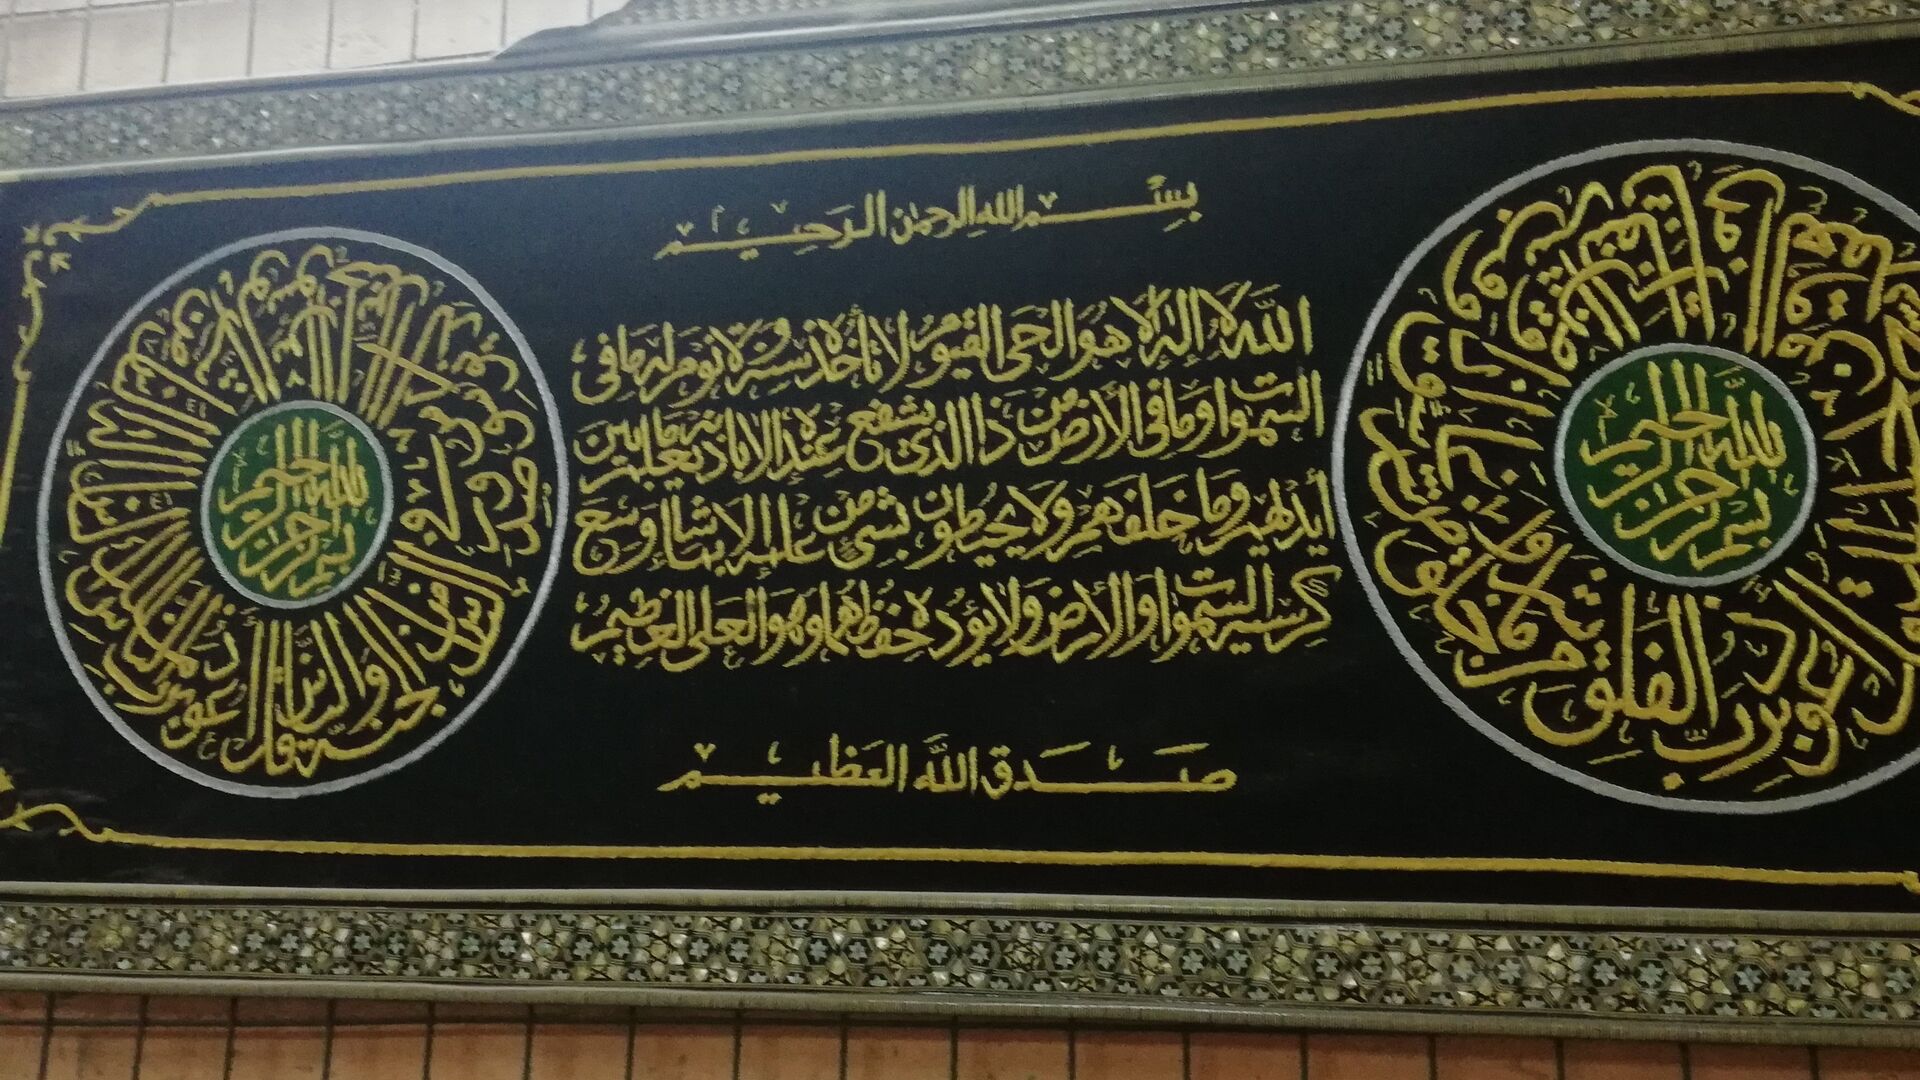 بسم الله الرحمن الرحيم
الله لا إله إلا هو الحي القيوم لا تأخذه سنة ولا نوم له ما في
السموات وما في الأرض من ذا الذي يشفع عنده إلا بإذنه يعلم ما بين
أيديهم وما خلفهم ولا يحيطون بشيء من علمه إلا بما شاء وسع
كرسيه السموات والأرض ولا يؤده حفظهما وهو العلي العظيم
صدق الله العظيم
بسم الله الرحمن الرحيم
قل أعوذ برب الفلق من شر ما خلق
بسم الله الرحمن الرحيم
قل أعوذ برب الناس
من الجنة والناس